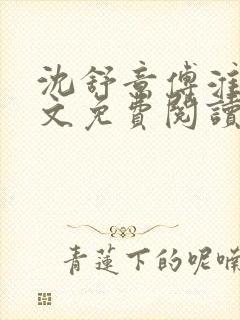 沈舒意傅淮
文免費閱讀
青蓮下的呢喃